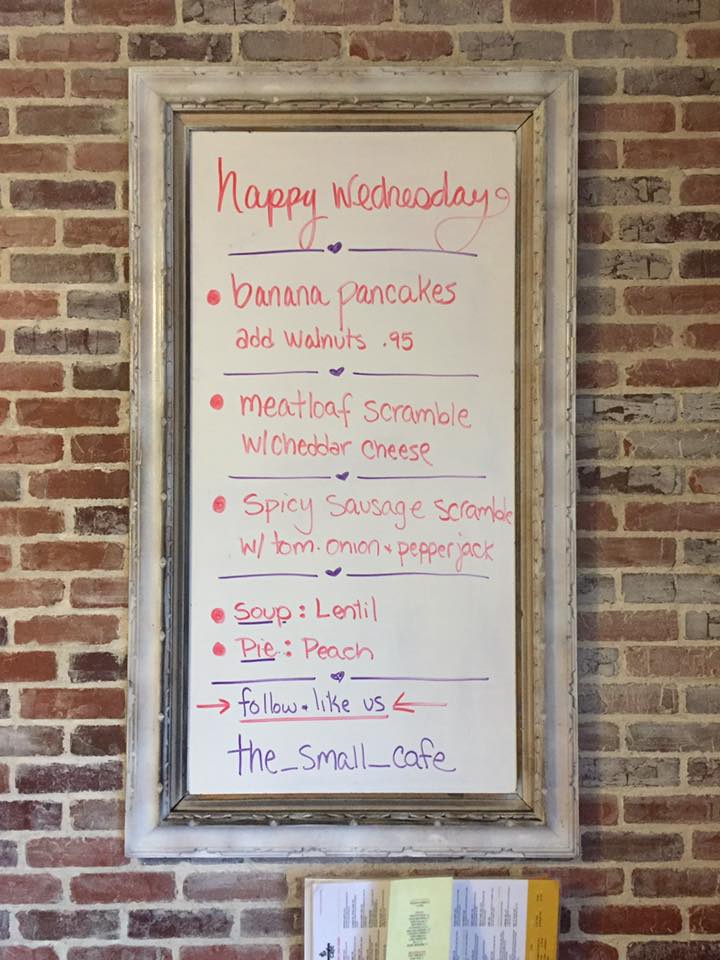 happy Wednesday
banana pancakes
add walnuts .95
meatloaf scramble
w/cheddar cheese
spicy sausage scramble
w/ tom. onion + pepperjack
Soup: Lentil
Pie: Peach
→ follow + like us ←
the_small_cafe
cafe